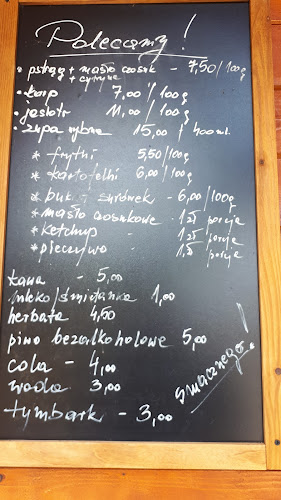 Polecamy!
* pstrąg + masło czosnk. - 7,50/100g
+ cytryna
• karp 7,00/100g
• jesiotr 11,00/100g
• zupa rybna 15,00 / 400ml.
* frytki 5,50/100g
* kartofelki 6,00/100g
* buk surówek - 6,00/100g
* masło czosnkowe - 1zł porcja
* ketchup - 1zł/porcja
* pieczywo 1zł/porcja
kawa - 5,00
mleko/śmietanka 1,00
herbata 4,50
piwo bezalkoholowe 5,00
cola - 4,00
woda 3,00
tymbark - 3,00
smacznego!